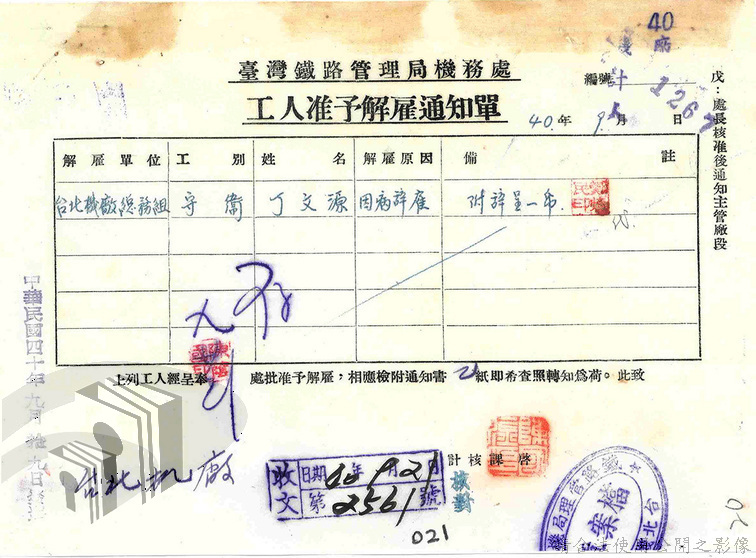 40
廠
臺灣鐵路管理局機務處
編號
計
1267
工人准予解雇通知單
40.年 9 月 日
戊：處長核准後通知主管廠段
解雇單位 工別 姓名 解雇原因 備註
台北機廠總務組 守衛 丁文源 因病辞雇 附辞呈一帋
上列工人經呈奉 處批准予解雇，相應檢附通知書 紙即希查照轉知為荷。此致
中華民國四十年九月拾九日
台北机廠
計核課啓
收文 日期 40年9月21
第2561號
核對
021
台北
鐵路管理局
檔案